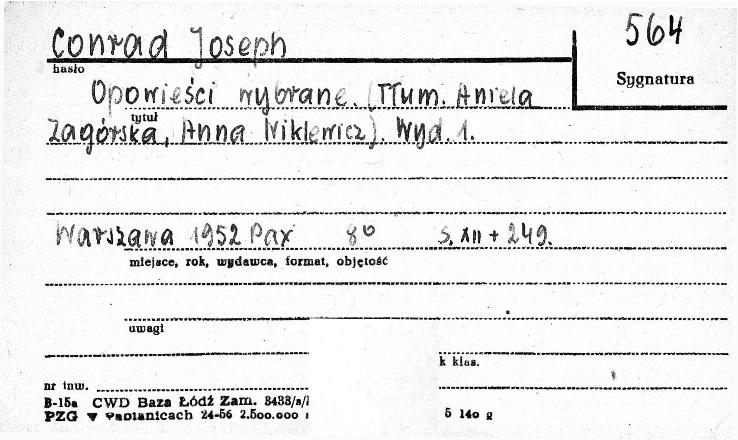 Conrad Joseph
564
hasło
Sygnatura
Opowieści wybrane. (Tłum. Aniela
tytuł
Zagórska, Anna Niklewicz). Wyd. 1.
Warszawa 1952 Pax 8º s. XII + 249.
miejsce, rok, wydawca, format, objętość
uwagi
k klas.
nr inw.
B-15a CWD Baza Łódź Zam. 3433/s/
PZG w Pabianicach 24-56 2.500.000
5 140 g